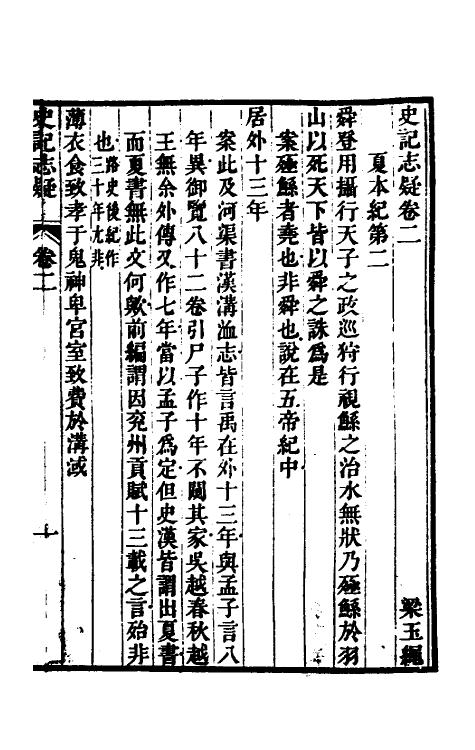 史記志疑卷二
梁玉繩
夏本紀第二
舜登用攝行天子之政巡狩行視鯀之治水無狀乃殛鯀於羽
山以死天下皆以舜之誅為是
案殛鯀者堯也非舜也說在五帝紀中
居外十三年
案此及河渠書漢溝洫志皆言禹在外十三年與孟子言八
年異御覽八十二卷引尸子作十年不闚其家吳越春秋越
王無余外傳又作七年當以孟子為定但史漢皆謂出夏書
而夏書無此文何歟前編謂因兗州貢賦十三載之言殆非
也路史後紀作三十年尤非
薄衣食致孝于鬼神卑宮室致費於溝淢
史記志疑
卷二
一